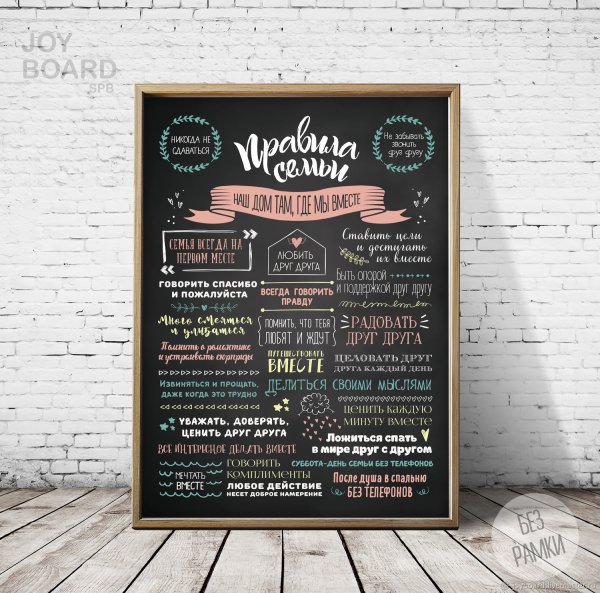 JOY
BOARD
SPB
НИКОГДА НЕ
СДАВАТЬСЯ
Правила
семьи
Не забывать
звонить
друг другу
НАШ ДОМ ТАМ, ГДЕ МЫ ВМЕСТЕ
СЕМЬЯ ВСЕГДА НА
ПЕРВОМ МЕСТЕ
ЛЮБИТЬ
ДРУГ ДРУГА
Ставить цели
и достигать
их вместе
ГОВОРИТЬ СПАСИБО
И ПОЖАЛУЙСТА
ВСЕГДА ГОВОРИТЬ
ПРАВДУ
Быть опорой
и поддержкой друг другу
Много смеяться
и улыбаться
ПОМНИТЬ, ЧТО ТЕБЯ
ЛЮБЯТ И ЖДУТ
РАДОВАТЬ
ДРУГ ДРУГА
Помнить о романтике
и устраивать сюрпризы
ПУТЕШЕСТВОВАТЬ
ВМЕСТЕ
ЦЕЛОВАТЬ ДРУГ
ДРУГА КАЖДЫЙ ДЕНЬ
Извиняться и прощать,
даже когда это трудно
ДЕЛИТЬСЯ СВОИМИ МЫСЛЯМИ
УВАЖАТЬ, ДОВЕРЯТЬ,
ЦЕНИТЬ ДРУГ ДРУГА
ЦЕНИТЬ КАЖДУЮ
МИНУТУ ВМЕСТЕ
ВСЕ ИНТЕРЕСНОЕ ДЕЛАТЬ ВМЕСТЕ
Ложиться спать
в мире друг с другом
МЕЧТАТЬ
ВМЕСТЕ
ГОВОРИТЬ
КОМПЛИМЕНТЫ
ЛЮБОЕ ДЕЙСТВИЕ
НЕСЕТ ДОБРОЕ НАМЕРЕНИЕ
СУББОТА-ДЕНЬ СЕМЬИ БЕЗ ТЕЛЕФОНОВ
После душа в спальню
БЕЗ ТЕЛЕФОНОВ
БЕЗ
РАМКИ